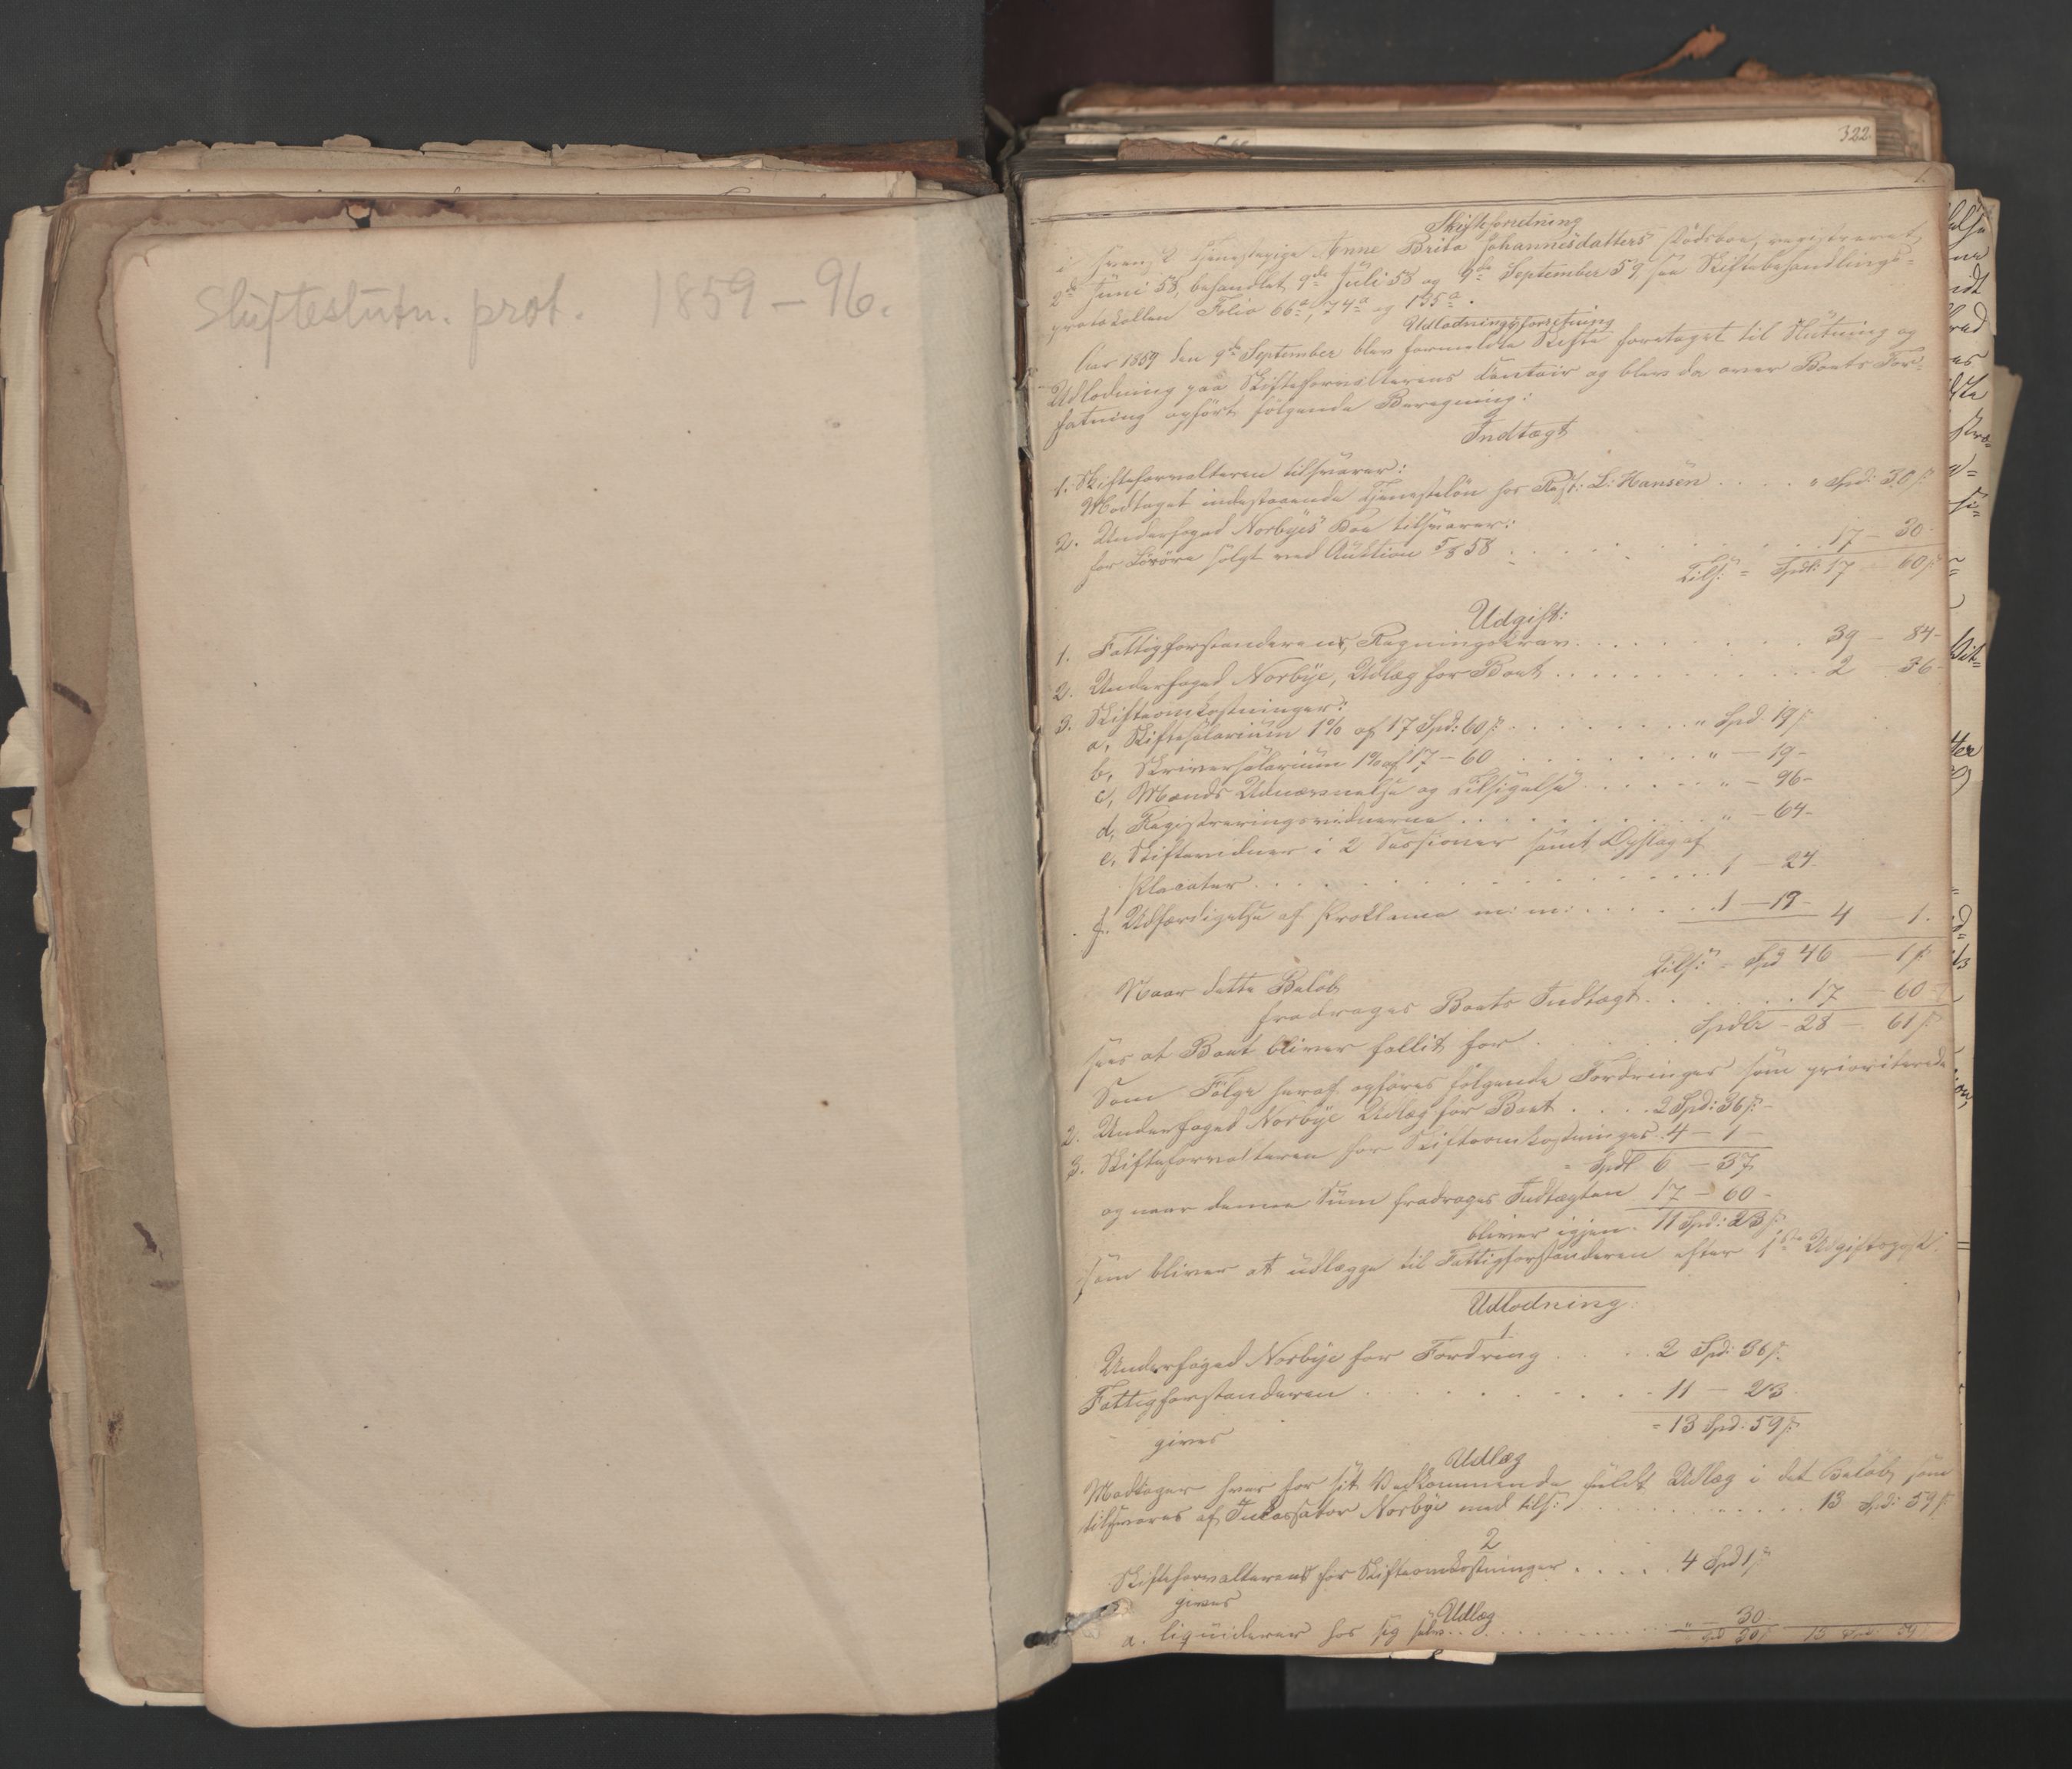 Skifteslutn. prot. 1859-96.
322.
1.
Skifteforretning
i svensk Tjenestepige Anne Brita Johannesdatters Dødsboe, registreret
2den Juni 58, behandlet 9de Juli 58 og 9de September 59 see Skiftebehandlings-
protokollen Folio 66a, 74a og 195a.
Udlodningsforretning
Aar 1859 den 9de September blev formeldte Skifte foretaget til Slutning og
Udlodning paa Skifteforvalterens Contoir og blev da over Boets For-
fatning opført følgende Beregning:
Indtægt
1. Skifteforvalteren tilsvarer:
Modtaget indestaaende Tjenesteløn hos L: Hansen . . . . " Spd: 30 s
2. Underfoged Norbyes Boe tilsvarer:
for Løsøre solgt ved Auktion 5/8 58 . . . . 17 - 30
Tils: = Spdl: 17 - 60 s
Udgift:
1. Fattigforstanderens, Regningskrav . . . . 39 - 84 -
2. Underfoged Norbye, Udlæg for Boet . . . . 2 36 -
3. Skifteomkostninger:
a, Skiftesalarium 1% af 17 Spd: 60 s . . . . " Spd. 19 s
b, Skriversalarium 1% af 17 - 60 . . . . " - 19 -
c, Mænds Udnævnelse og Tilsigelse . . . . " - 96 -
d, Registreringsvidnerne . . . . " - 64 -
e, Skiftevidner i 2 Sessioner samt Opslag af
Placater . . . . 1 - 24
f. Udfærdigelse af Proklama m: m: . . . . 1 - 19 - 4 - 1.
Tils: = Spd 46 - 1 s
Naar dette Beløb
fradrages Boets Indtægt . . . . 17 - 60 -
sees at Boet bliver fallit for . . . . Spdlr - 28 - 61 s
Som Følge heraf opføres følgende Fordringer som prioriterede
2. Underfoged Norbye Udlæg for Boet . . . . 2 Spd: 36 s -
3. Skifteforvalteren for Skifteomkostninger . 4 - 1 -
= Spdl 6 - 37
og naar denne Sum fradrages Indtægten 17 - 60 -
bliver igjen = 11 Spd: 23 s
som bliver at udlægge til Fattigforstanderen efter 1ste Udgiftspost.
Udlodning
1
Underfoged Norbye for Fordring . . . 2 Spd: 36 s.
Fattigforstanderen . . . . 11 - 23
= 13 Spd: 59 s
gives
Udlæg
Modtager hver for sit Vedkommende fuldt Udlæg i det Beløb som
tilsvares af Inkassator Norbye med tils: . . . . 13 Spd: 59 s
2
Skifteforvalterens for Skifteomkostninger . . . . 4 Spd 1 s
gives
Udlæg
a. liquiderer hos sig selv . . . . " - 30.